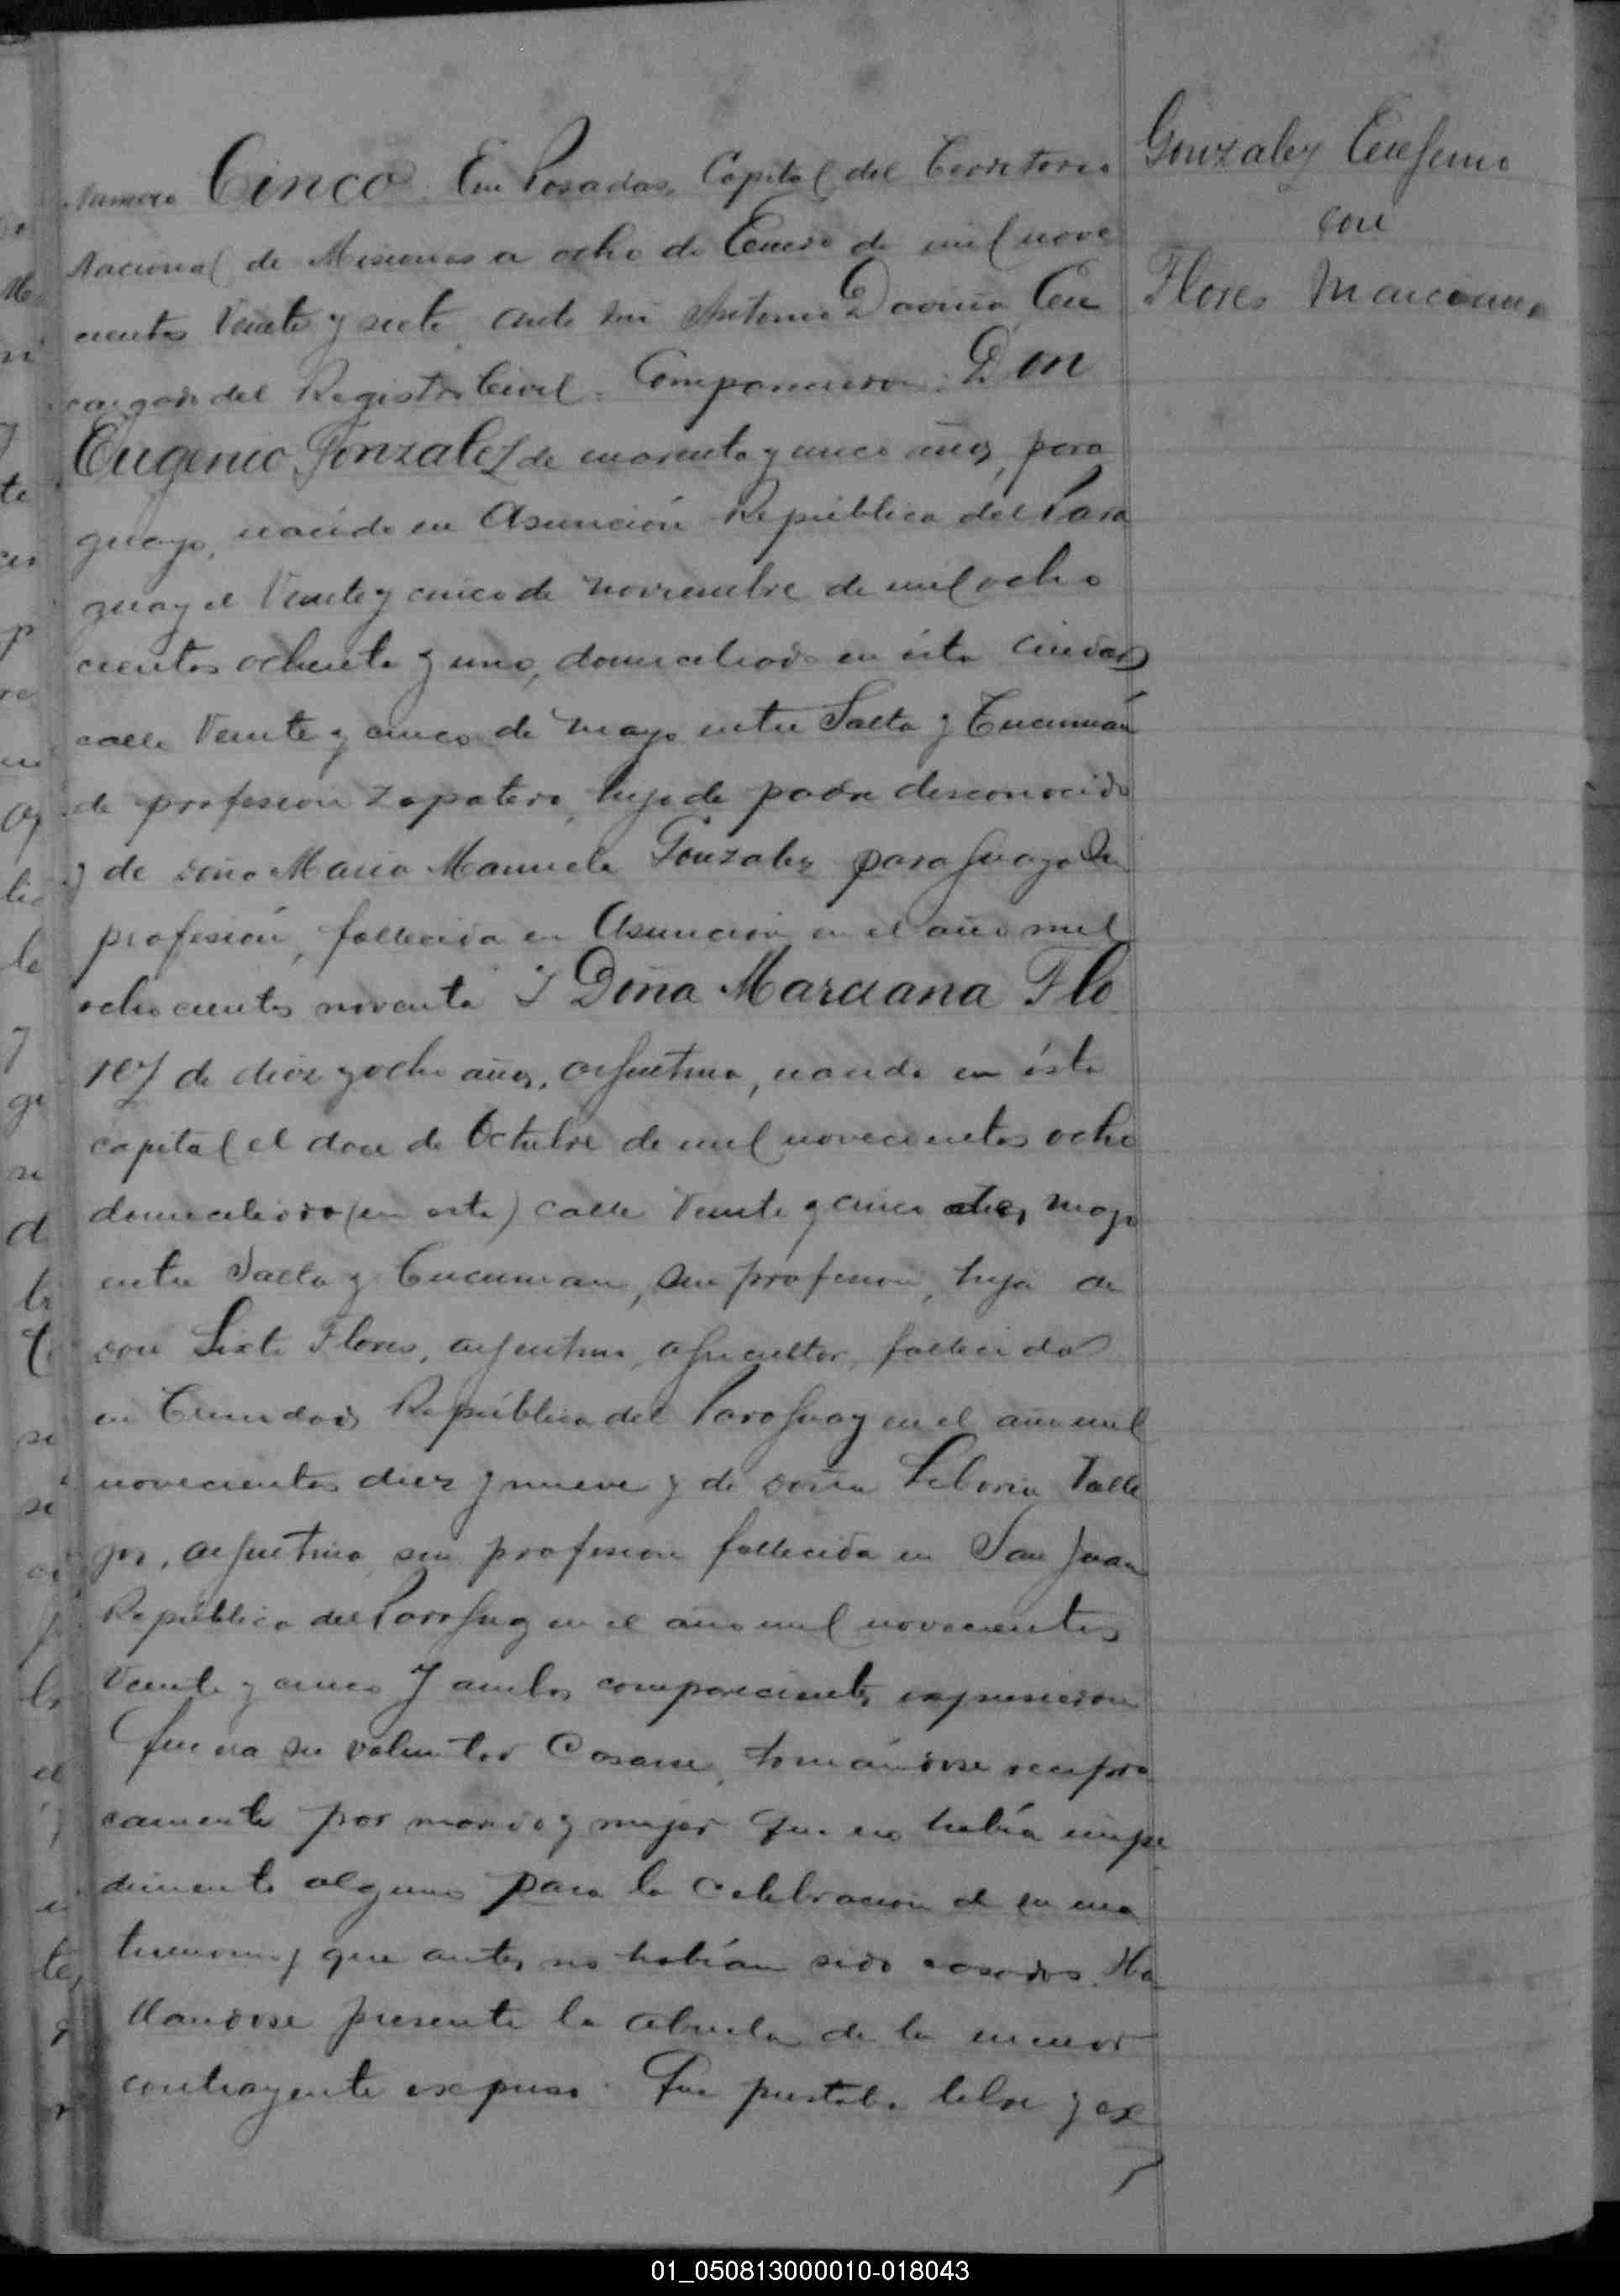 Gonzalez Eugenio
con
Flores Marciana
Numero Cinco. En Posadas, Capital del Territorio
Nacional de Misiones a ocho de Enero de mil nove
cientos Veinte y siete, ante mi Antonio Daviña, En
cargado del Registro Civil. Comparecieron: Don
Eugenio Gonzalez de cuarenta y cinco años, para
guayo, nacido en Asunción República del Para
guay el Veinte y cinco de Noviembre de mil ocho
cientos ochenta y uno, domiciliado en ésta Ciudad
calle Veinte y cinco de Mayo entre Salta y Tucumán
de profesion Zapatero, hijo de padre desconocido
y de doña Maria Manuela Gonzalez paraguaya sin
profesión, fallecida en Asunción en el año mil
ochocientos noventa Y Doña Marciana Flo
rez de diez y ocho años, argentina, nacida en ésta
capital el doce de Octubre de mil novecientos ocho
domiciliada (en esta) calle Veinte y cinco de Mayo
entre Salta y Tucuman, sin profesion, hija de
don Sixto Flores, argentino, agricultor, fallecido
en Trinidad República del Paraguay en el año mil
novecientos diez y nueve y de doña Liboria Valle
jos, argentina, sin profesion fallecida en San Juan
República del Paraguay en el año mil novecientos
Veinte y cinco Y ambos comparecientes expusieron
Que era su voluntad Casarse, tomándose recipro
camente por marido y mujer Que no había impe
dimento alguno para la Celebracion de su ma
trimonio y que antes no habían sido casados. Ha
llandose presente la abuela de la menor
contrayente expuso: Que prestaba libre y ex
01_050813000010-018043